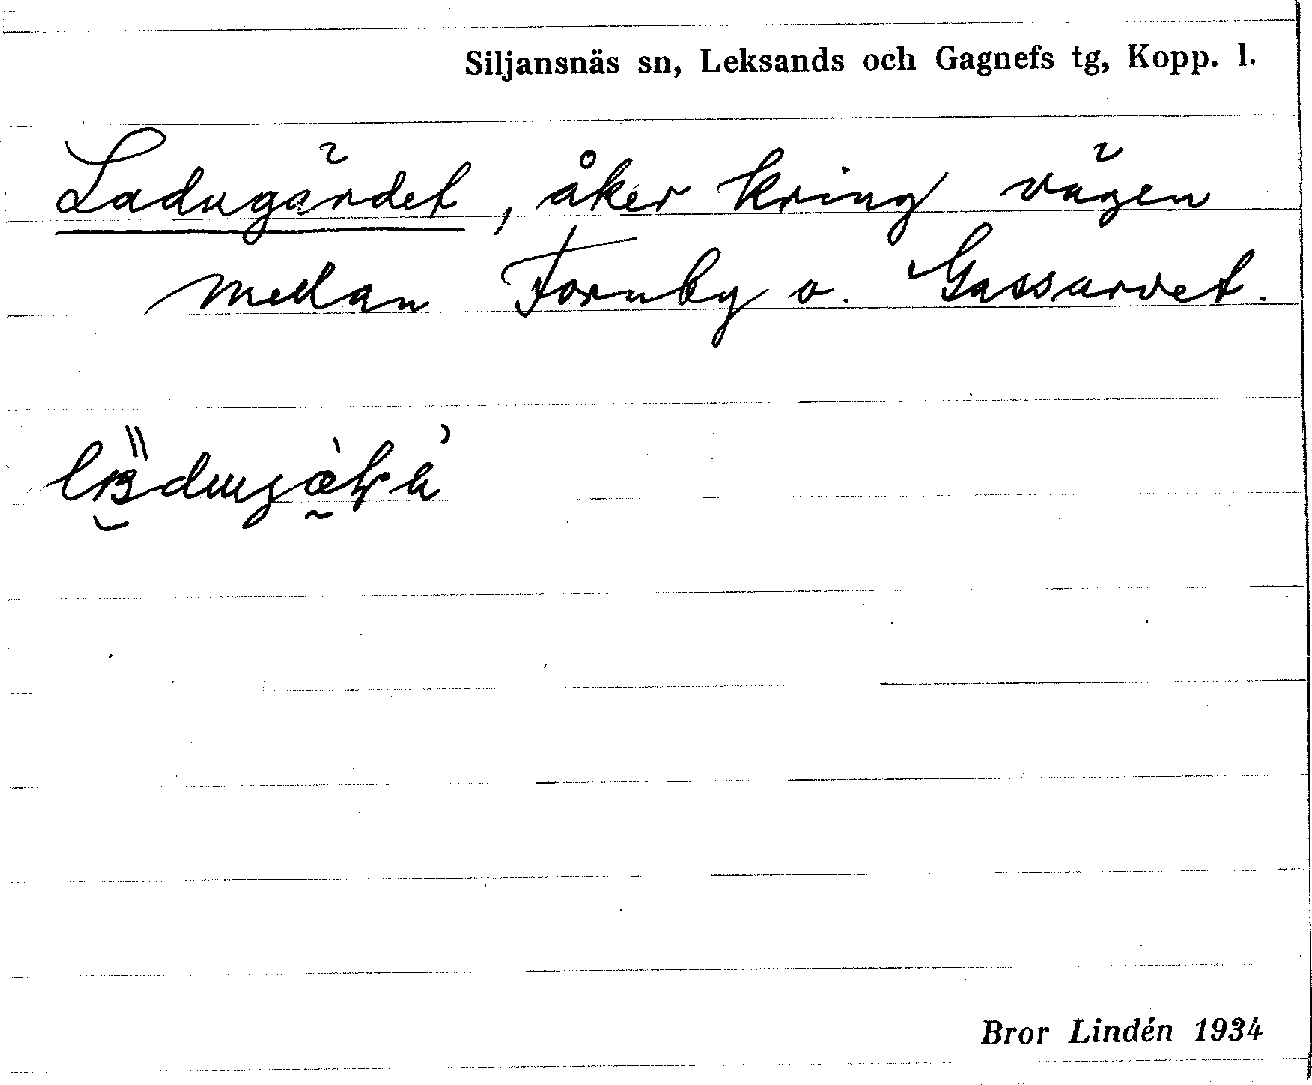 Siljansnäs sn, Leksands och Gagnefs tg, Kopp. l.
Ladugärdet, åker kring vägen
mellan Fornby o. Gassarvet.
Bror Lindén 1934